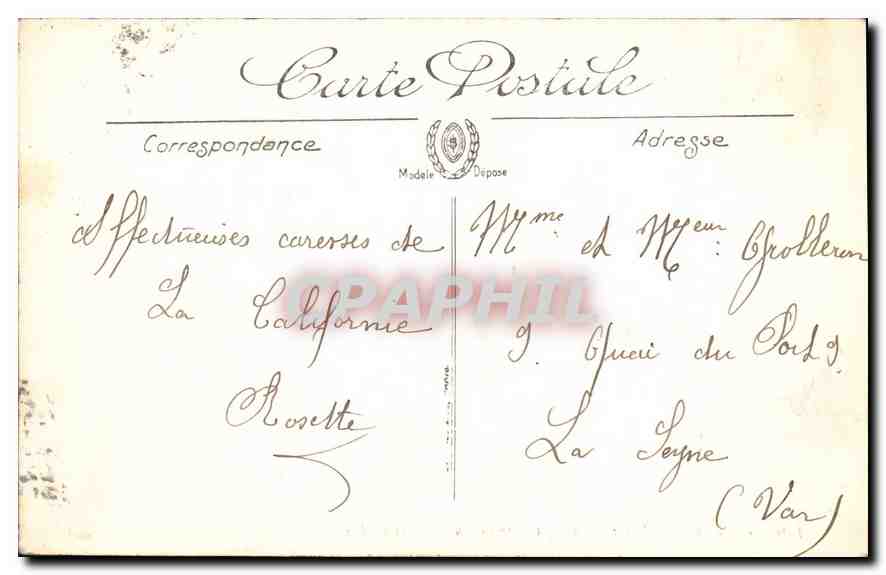 Carte Postale
Correspondance
Adresse
Modèle Déposé
Affectueuses caresses de
La Californie
Rosette
Mme et Mr eur :
9. Quai du Port 9.
La Seyne
(Var)
CPAPHIL